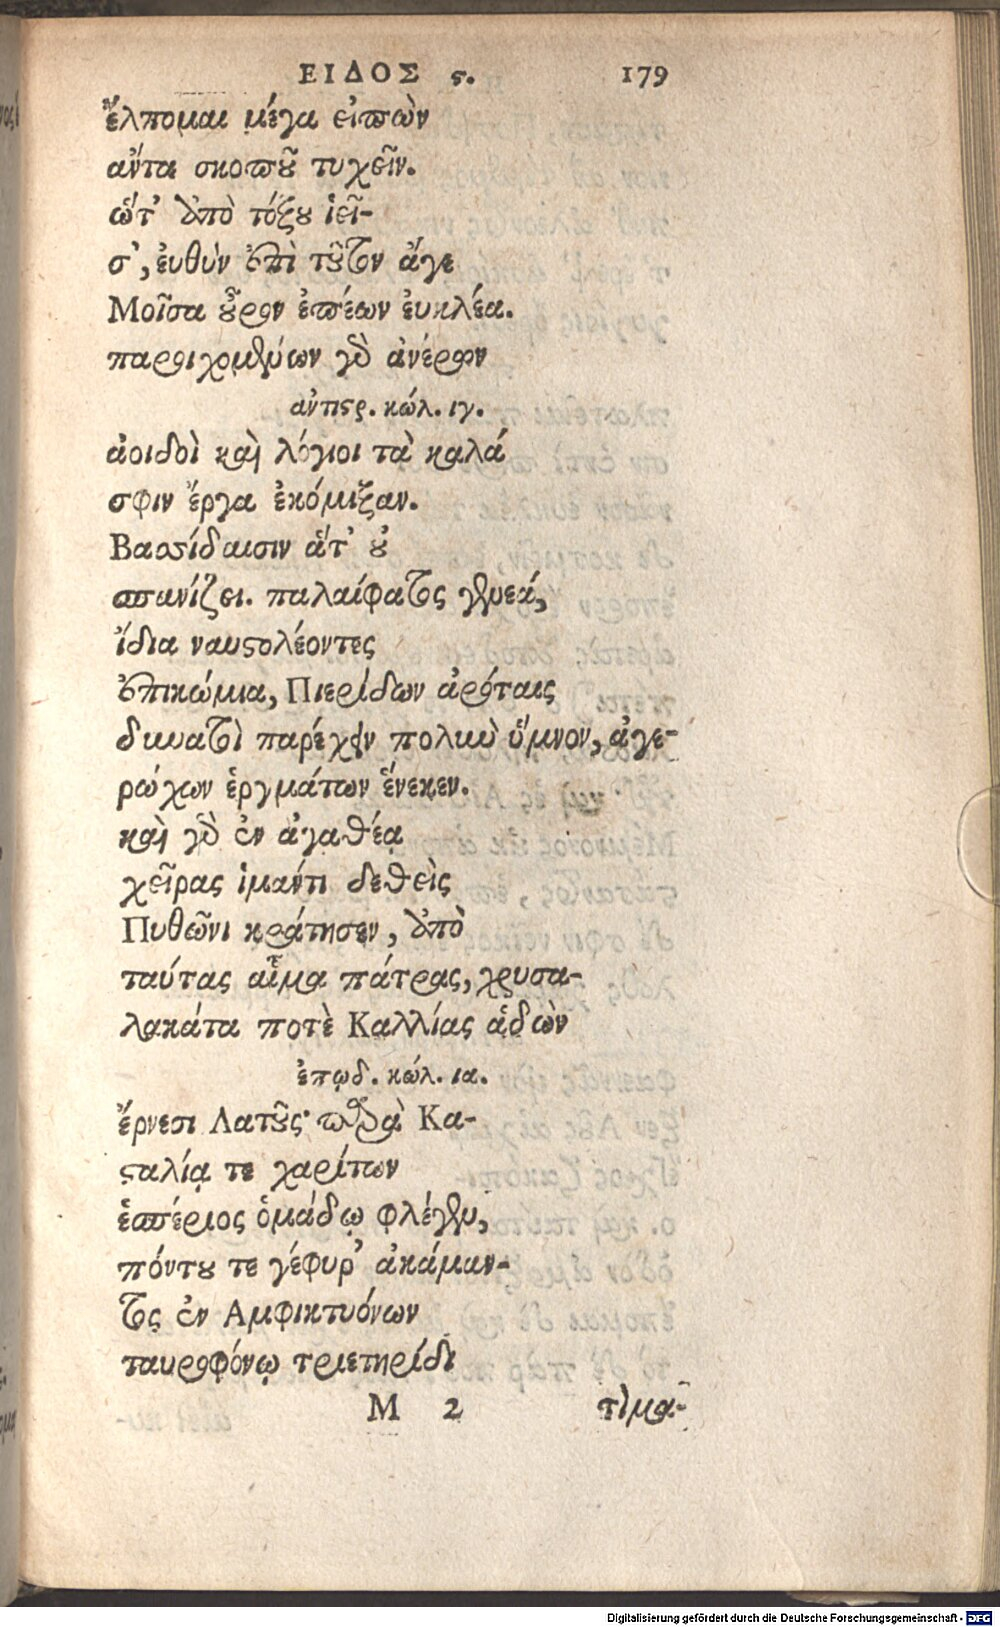 ΕΙΔΟΣ ϛ. 179
ἔλπομαι μέγα εἰπὼν
ἄντα σκοποῦ τυχεῖν.
ὥτ' ἀπὸ τόξου ἱεῖ-
σ', εὐθὺν ἐπὶ τοῦτον ἄγε
Μοῖσα οὖρον ἐπέων εὐκλέα.
παροιχομένων γὸ ἀνέρων
ἀντιστρ. κώλ. ιγ.
ἀοιδοὶ καὶ λόγιοι τὰ καλά
σφιν ἔργα ἐκόμιξαν.
Βασσίδαισιν ἅτ' οὐ
σπανίζει. παλαίφατος γενεά,
ἴδια ναυστολέοντες
ἐπικώμια, Πιερίδων ἀρόταις
δυνατοὶ παρέχειν πολὺν ὕμνον, ἀγε-
ρώχων ἑργμάτων ἕνεκεν.
καὶ γὸ ἐν ἀγαθέᾳ
χεῖρας ἱμάντι δεθεὶς
Πυθῶνι κράτησεν, ἀπὸ
ταύτας αἷμα πάτρας, χρυσα-
λακάτα ποτὲ Καλλίας ἁδὼν
ἐπῳδ. κώλ. ια.
ἔρνεσι Λατοῦς· παρὰ Κα-
σταλίᾳ τε χαρίτων
ἑσπέριος ὁμάδῳ φλέγεν,
πόντου τε γέφυρ' ἀκάμαν-
τος ἐν Ἀμφικτυόνων
ταυροφόνῳ τριετηρίδι
Μ 2 τίμα-
Digitalisierung gefördert durch die Deutsche Forschungsgemeinschaft - DFG